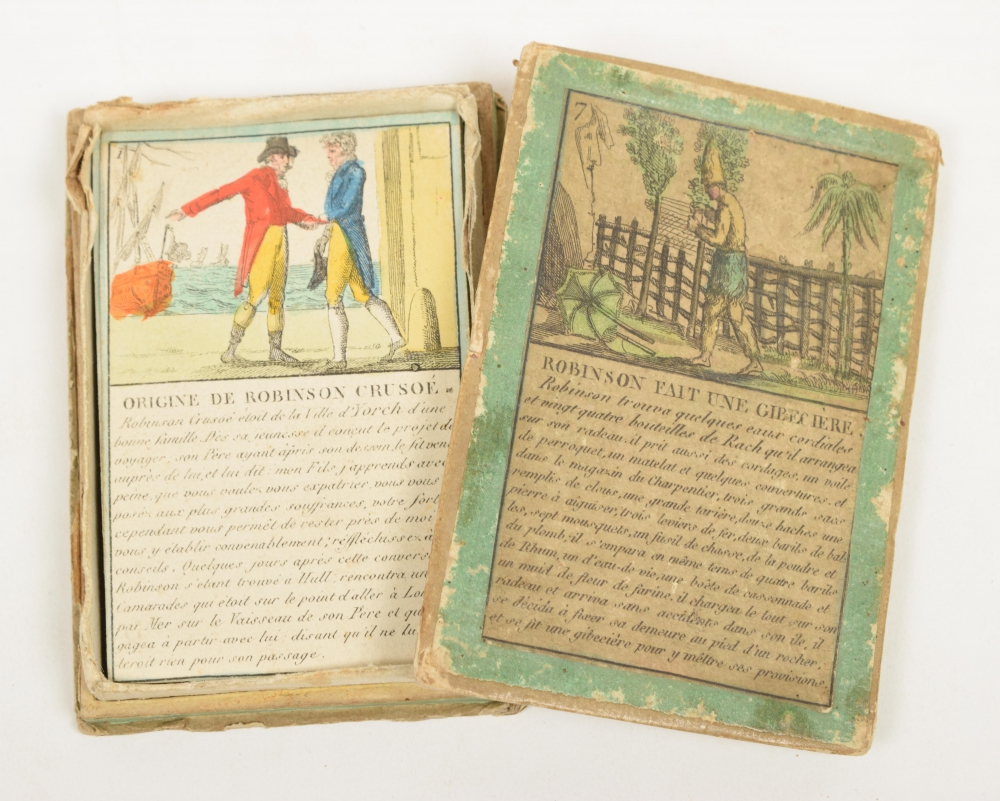 ORIGINE DE ROBINSON CRUSOÉ
Robinson Crusoé étoit de la Ville d'Yorch d'une
bonne famille. Dès sa jeunesse il conçut le projet de
voyager, son Pere ayant apris son dessein, le fit venir
auprès de lui, et lui dit: mon Fils j'apprends avec
peine, que vous voulez vous expatrier, vous vous
posez aux plus grandes souffrances, votre fort
cependant vous permêt de rester près de moi
vous y etablir convenablement; réfléchissez à
conseils. Quelques jours après cette convers
Robinson s'étant trouvé a Hull rencontra un
Camarades qui étoit sur le point d'aller à Lon
par Mer sur le Vaisseau de son Pere et qui
gagea à partir avec lui, disant qu'il ne lu
teroit rien pour son passage.
7
ROBINSON FAIT UNE GIBECIERE.
Robinson trouva quelques eaux cordiales
et vingt quatre bouteilles de Rach qu'il arrangea
sur son radeau, il prit aussi des cordages, un voile
de perroquet, un matelat et quelques couvertures, et
dans le magazin du Charpentier, trois grands sacs
remplis de clous, une grande tarière, douze haches une
pierre à aiguiser, trois leviers de fer, deux barils de bal-
les, sept mousquets, un fusil de chasse, de la poudre et
du plomb; il s'empara en même tems de quatre barils
de Rhum, un d'eau de vie, une boëte de cassonnade et
un muid de fleur de farine, il chargea le tout sur son
radeau et arriva sans accidents dans son île, il
se décida à fixer sa demeure au pied d'un rocher,
et se fit une gibeciére pour y mêttre ses provisions.